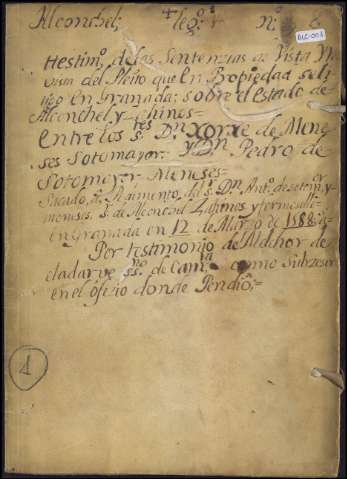 Alconchel; leg.º 1 n.º 6
ALC-004
Testim.º de las Sentenzias de Vista y Re
vista del Pleito que en Propiedad se li
tigo en Granada: sobre el estado de
Alconchel, y chinos=
Entre los s.res D.n Xorxe de Mene
ses Sotomayor: y D.n Pedro de
Sotomayor Meneses=
Sacado A Pedimento del s.r D.n Ant.º de sotom.r y
meneses, s.r de Alconchel
en Granada en 12 de Marzo de 1588:
Por testimonio de Melchor de
eladarve ss.no de Cam.ra como subzesor
en el ofizio donde Pendio;=
1